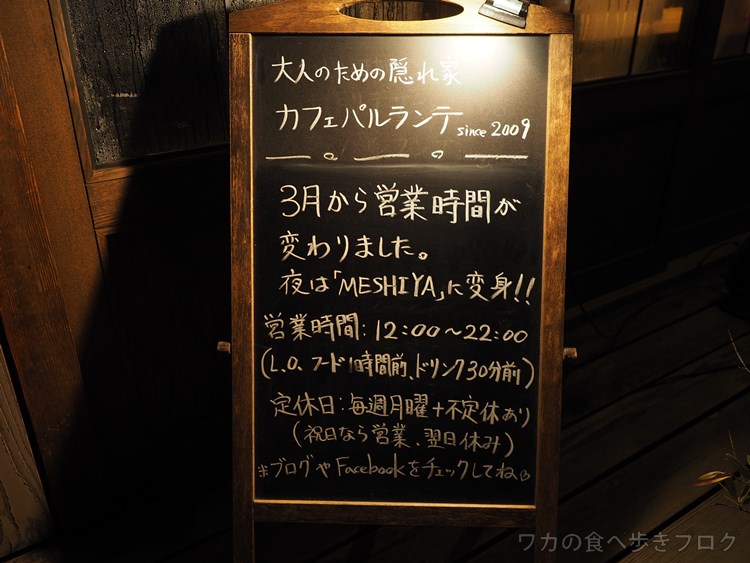 大人のための隠れ家
カフェパルランテ since 2009
3月から営業時間が
変わりました。
夜は「MESHIYA」に変身!!
営業時間:12:00~22:00
(L.O. フード1時間前、ドリンク30分前)
定休日:毎週月曜+不定休あり
(祝日なら営業、翌日休み)
※ブログやFacebookをチェックしてね
ワカの食べ歩きブログ